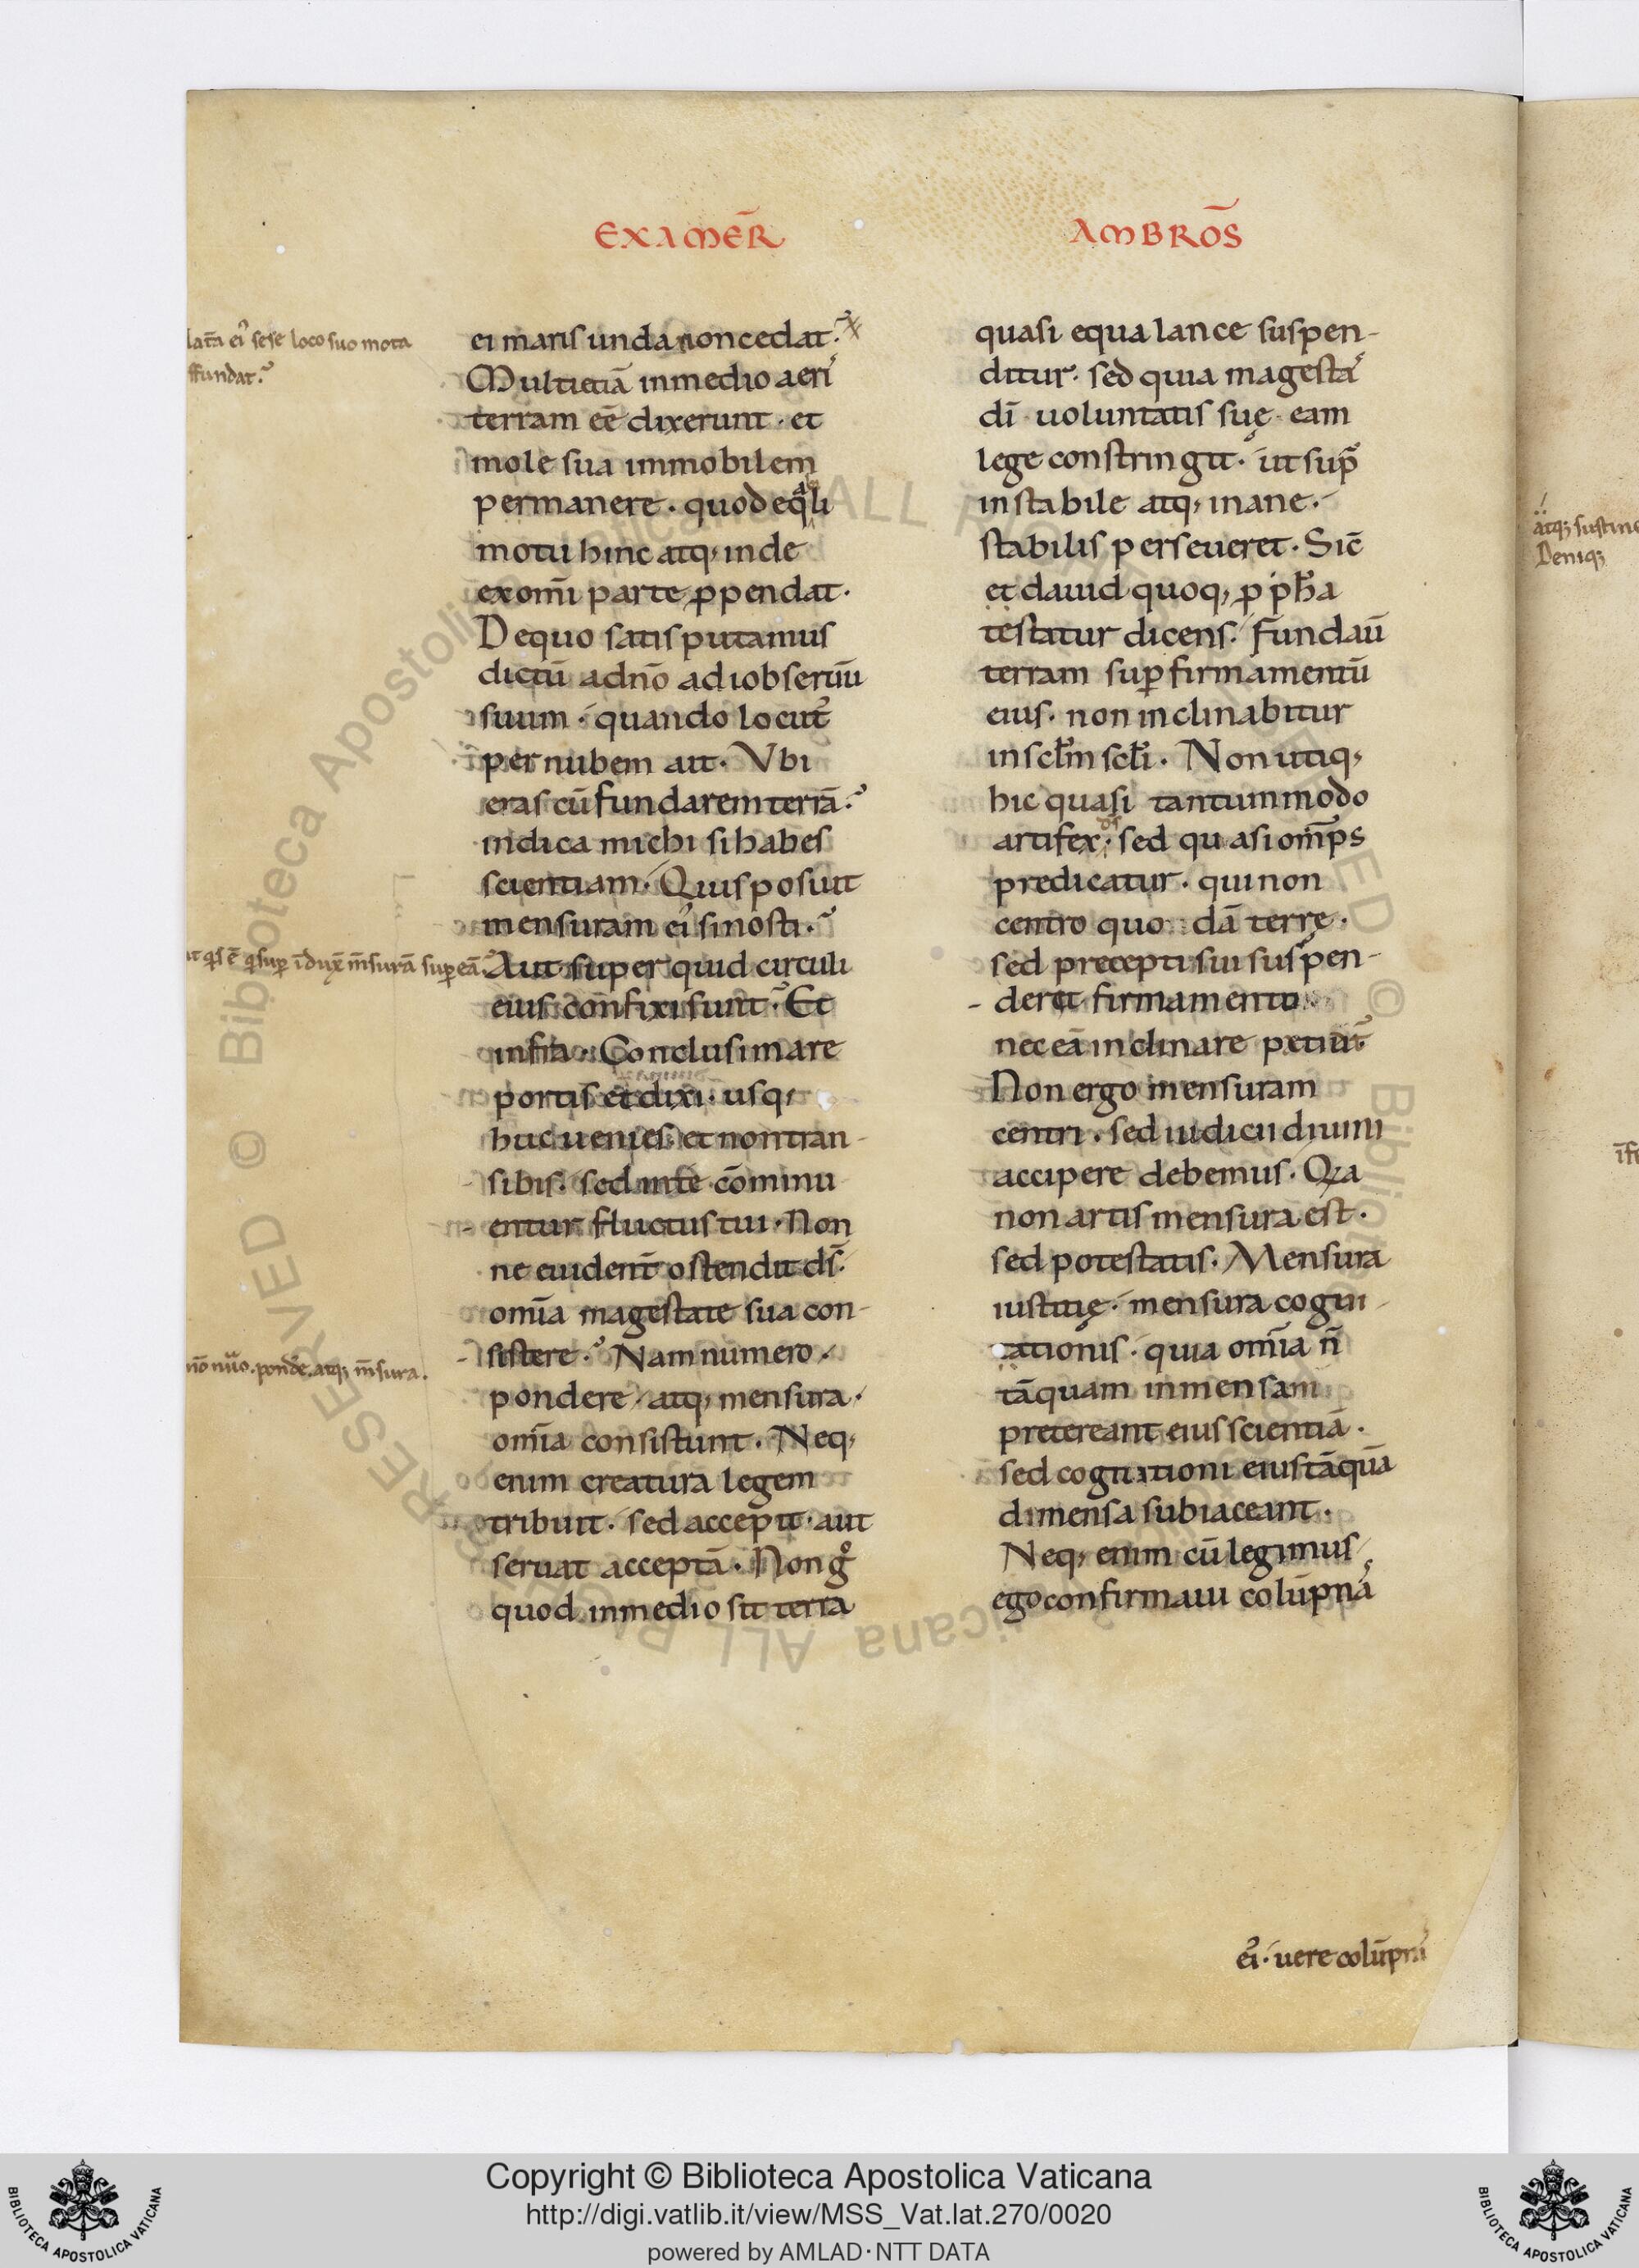 EXAMER̄
AMBROS̄
ei maris unda non cedat.
Multi etiā in medio aeri᷒
terram eē dixerunt · et
mole sua immobilem
permanere · quod eq̄li
motu hinc atq; inde
ex om̄i parte ꝓpendat.
De quo satis putamus
dictū a dn̄o ad iob seruū
suum · quando locut᷒
per nubem ait. Vbi
eras cū fundarem terrā.
indica michi si habes
scientiam. Quis posuit
mensuram ei᷒ si nosti.
Aut super quid circuli
eius confixi sunt. Et
infra. Conclusi mare
portis et dixi · usq;
huc uenies. et non tran-
sibis. sed in te cōminu
entur fluctus tui. Non
ne euident̄ ostendit ds̄.
om̄ia magestate sua con-
sistere. Nam numero.
pondere, atq; mensura.
om̄ia consistunt. Neq;
enim creatura legem
tribuit. sed accepit. aut
seruat acceptā. Non gͦ
quod in medio sit terra
quasi equa lance suspen-
ditur. sed quia magesta᷒
dī uoluntatis suę eam
lege constringit. ut sup̄
instabile atq; inane.
stabilis perseueret. Sic̄
et dauid quoq; ꝓph̄a
testatur dicens. Fundau̅
terram suꝑ firmamentū
eius. non inclinabitur
in scl̄m scl̄i. Non utiq;
hic quasi tantummodo
artifex. sed quasi om̄ps
predicatur. qui non
centro quo dā terrę.
sed precepti sui suspen-
derit firmamento
nec eā inclinare
Non ergo mensuram
centri. sed iudicii diuini
accipere debemus. Qia
non artis mensura est.
sed potestatis. Mensura
iustitię. mensura cogni-
tationis. quia om̄ia n̄
tāquam inmensam
pretereant eius scientiā.
sed cogitationi eius tāquā
dimensa subiaceant.
Neq; enim cū legimus
ego confirmaui colūpna᷒
ei᷒. uere colūpna᷒
ei᷒ sese loco suo mota
ffundat.
sup mēsurā super eā.
nō nūo. ponde. atq; m̄sura.
ātq; sustine
Deniq;
Copyright © Biblioteca Apostolica Vaticana
http://digi.vatlib.it/view/MSS_Vat.lat.270/0020
powered by AMLAD·NTT DATA
BIBLIOTECA APOSTOLICA VATICANA
BIBLIOTECA APOSTOLICA VATICANA